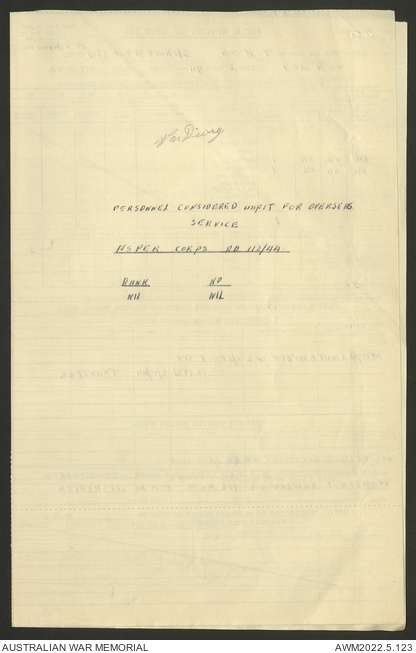 War Diary
PERSONNEL CONSIDERED UNFIT FOR OVERSEAS
SERVICE
AS PER CORPS RO 112/44
RANK NO
NIL NIL
AUSTRALIAN WAR MEMORIAL AWM2022.5.123